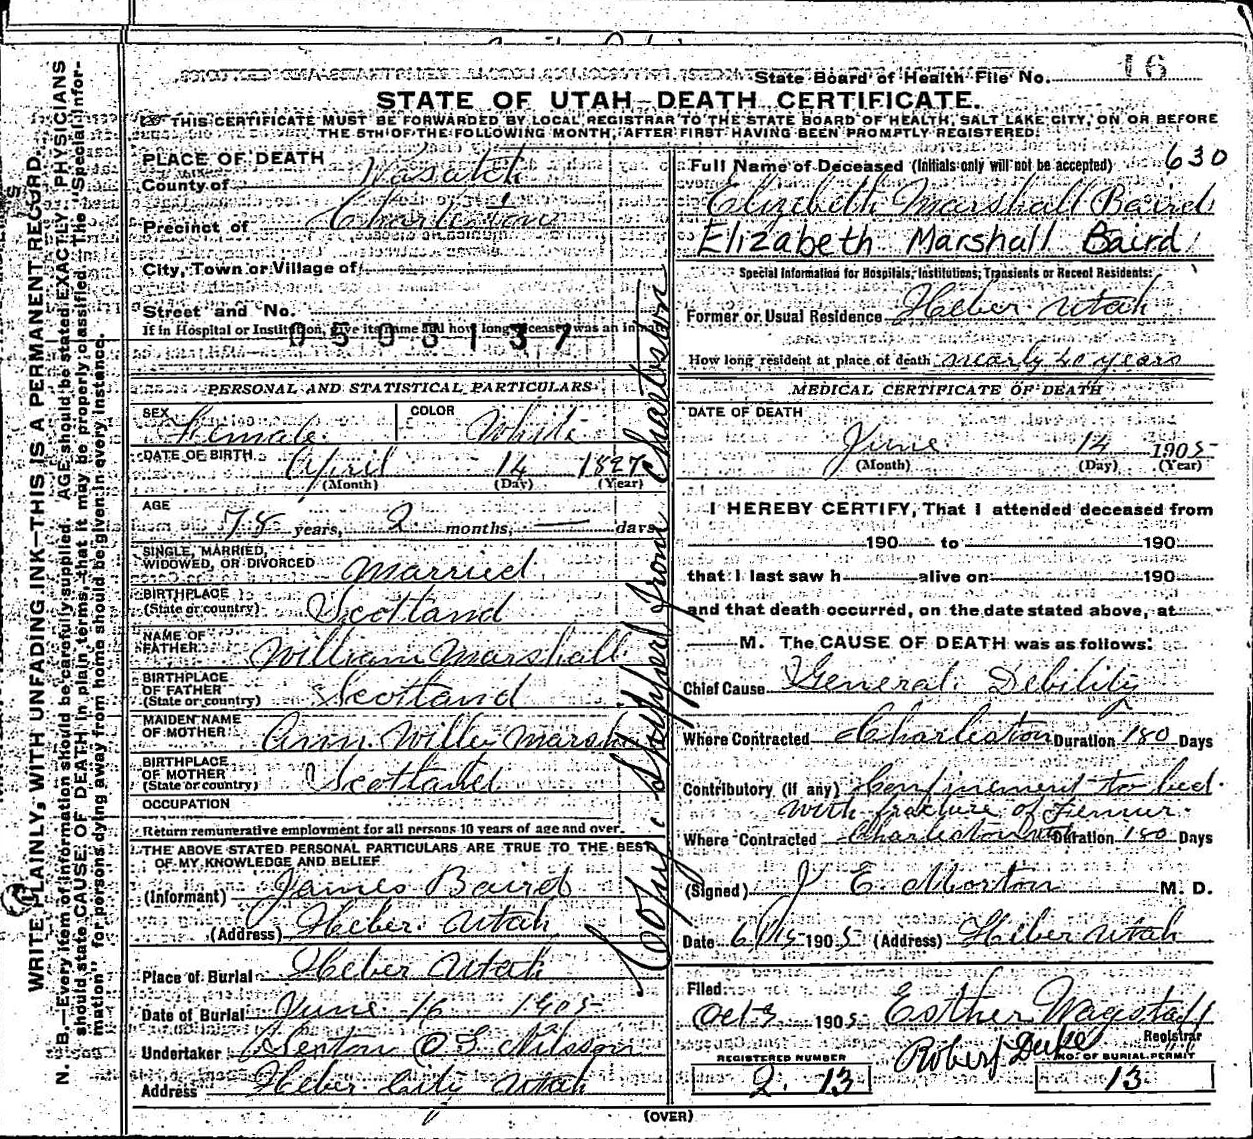 State Board of Health File No. 16
STATE OF UTAH—DEATH CERTIFICATE.
THIS CERTIFICATE MUST BE FORWARDED BY LOCAL REGISTRAR TO THE STATE BOARD OF HEALTH, SALT LAKE CITY, ON OR BEFORE
THE 5TH OF THE FOLLOWING MONTH, AFTER FIRST HAVING BEEN PROMPTLY REGISTERED.
WRITE PLAINLY, WITH UNFADING INK—THIS IS A PERMANENT RECORD.
N. B.—Every item of information should be carefully supplied. AGE should be stated EXACTLY. PHYSICIANS
should state CAUSE OF DEATH in plain terms, that it may be properly classified. The "Special Infor-
mation" for persons dying away from home should be given in every instance.
PLACE OF DEATH
County of Wasatch
Precinct of Charleston
City, Town or Village of
Street and No.
If in Hospital or Institution, give its name and how long deceased was an in
0508137
PERSONAL AND STATISTICAL PARTICULARS
SEX Female COLOR White
DATE OF BIRTH April 14 1827
(Month) (Day) (Year)
AGE 78 years, 2 months, — days
SINGLE, MARRIED,
WIDOWED, OR DIVORCED Married
BIRTHPLACE
(State or country) Scotland
NAME OF
FATHER William Marshall
BIRTHPLACE
OF FATHER
(State or country) Scotland
MAIDEN NAME
OF MOTHER Ann Willey Marsh
BIRTHPLACE
OF MOTHER
(State or country) Scotland
OCCUPATION
Return remunerative employment for all persons 10 years of age and over.
THE ABOVE STATED PERSONAL PARTICULARS ARE TRUE TO THE BEST
OF MY KNOWLEDGE AND BELIEF
(Informant) James Baird
(Address) Heber Utah
Place of Burial Heber Utah
Date of Burial June 16 1905
Undertaker Nilsson
Address Heber City Utah
Copy Shipped from Charleston
630
Full Name of Deceased (Initials only will not be accepted)
Elizabeth Marshall Baird
Elizabeth Marshall Baird
Special Information for Hospitals, Institutions, Transients or Recent Residents:
Former or Usual Residence Heber Utah
How long resident at place of death nearly 40 years
MEDICAL CERTIFICATE OF DEATH
DATE OF DEATH
June 14 1905
(Month) (Day) (Year)
I HEREBY CERTIFY, That I attended deceased from
190 to 190
that I last saw h alive on 190
and that death occurred, on the date stated above, at
M. The CAUSE OF DEATH was as follows:
Chief Cause General Debility
Where Contracted Charleston Duration 180 Days
Contributory (if any) Confinement to bed
with fracture of Femur.
Where Contracted Charleston Utah Duration 180 Days
(Signed) J E Morton M. D.
Date 6/15 1905 (Address) Heber Utah
Filed
Oct 3 1905 Esther Wagstaff
Registrar
Robert Duke
REGISTERED NUMBER NO. OF BURIAL PERMIT
2. 13 13
(OVER)